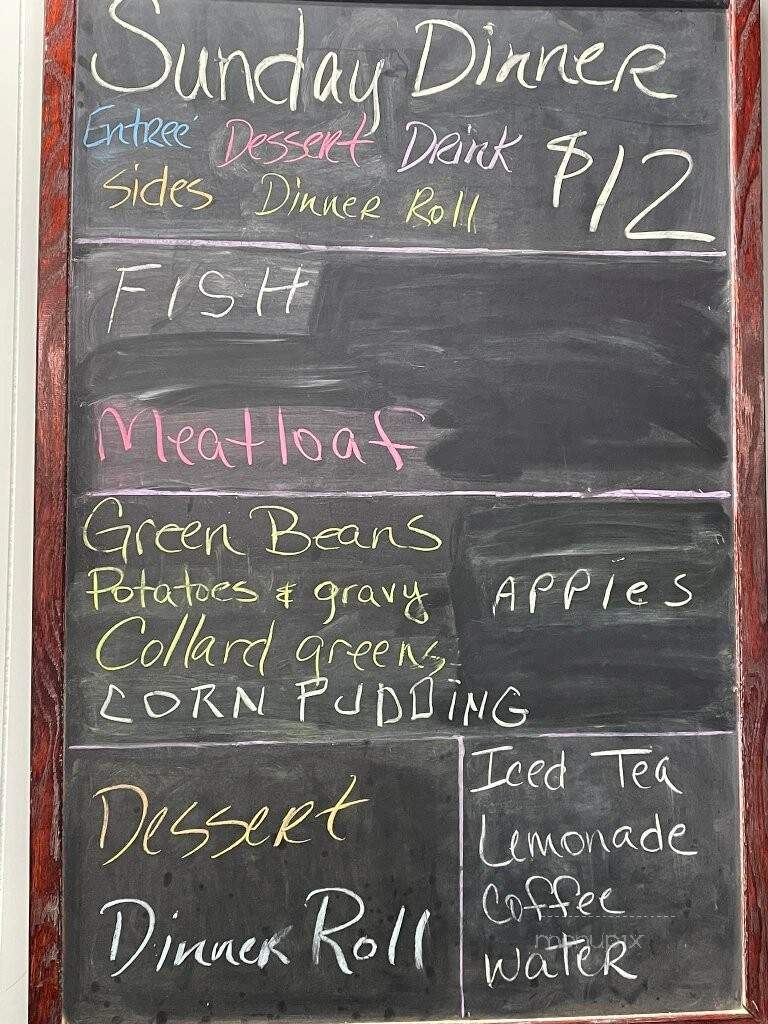 Sunday Dinner
Entreé Dessert Drink $12
Sides Dinner Roll
FISH
Meatloaf
Green Beans
Potatoes & gravy
APPlES
Collard greens
CORN PUDDING
Dessert
Dinner Roll
Iced Tea
Lemonade
Coffee
menupix
Water